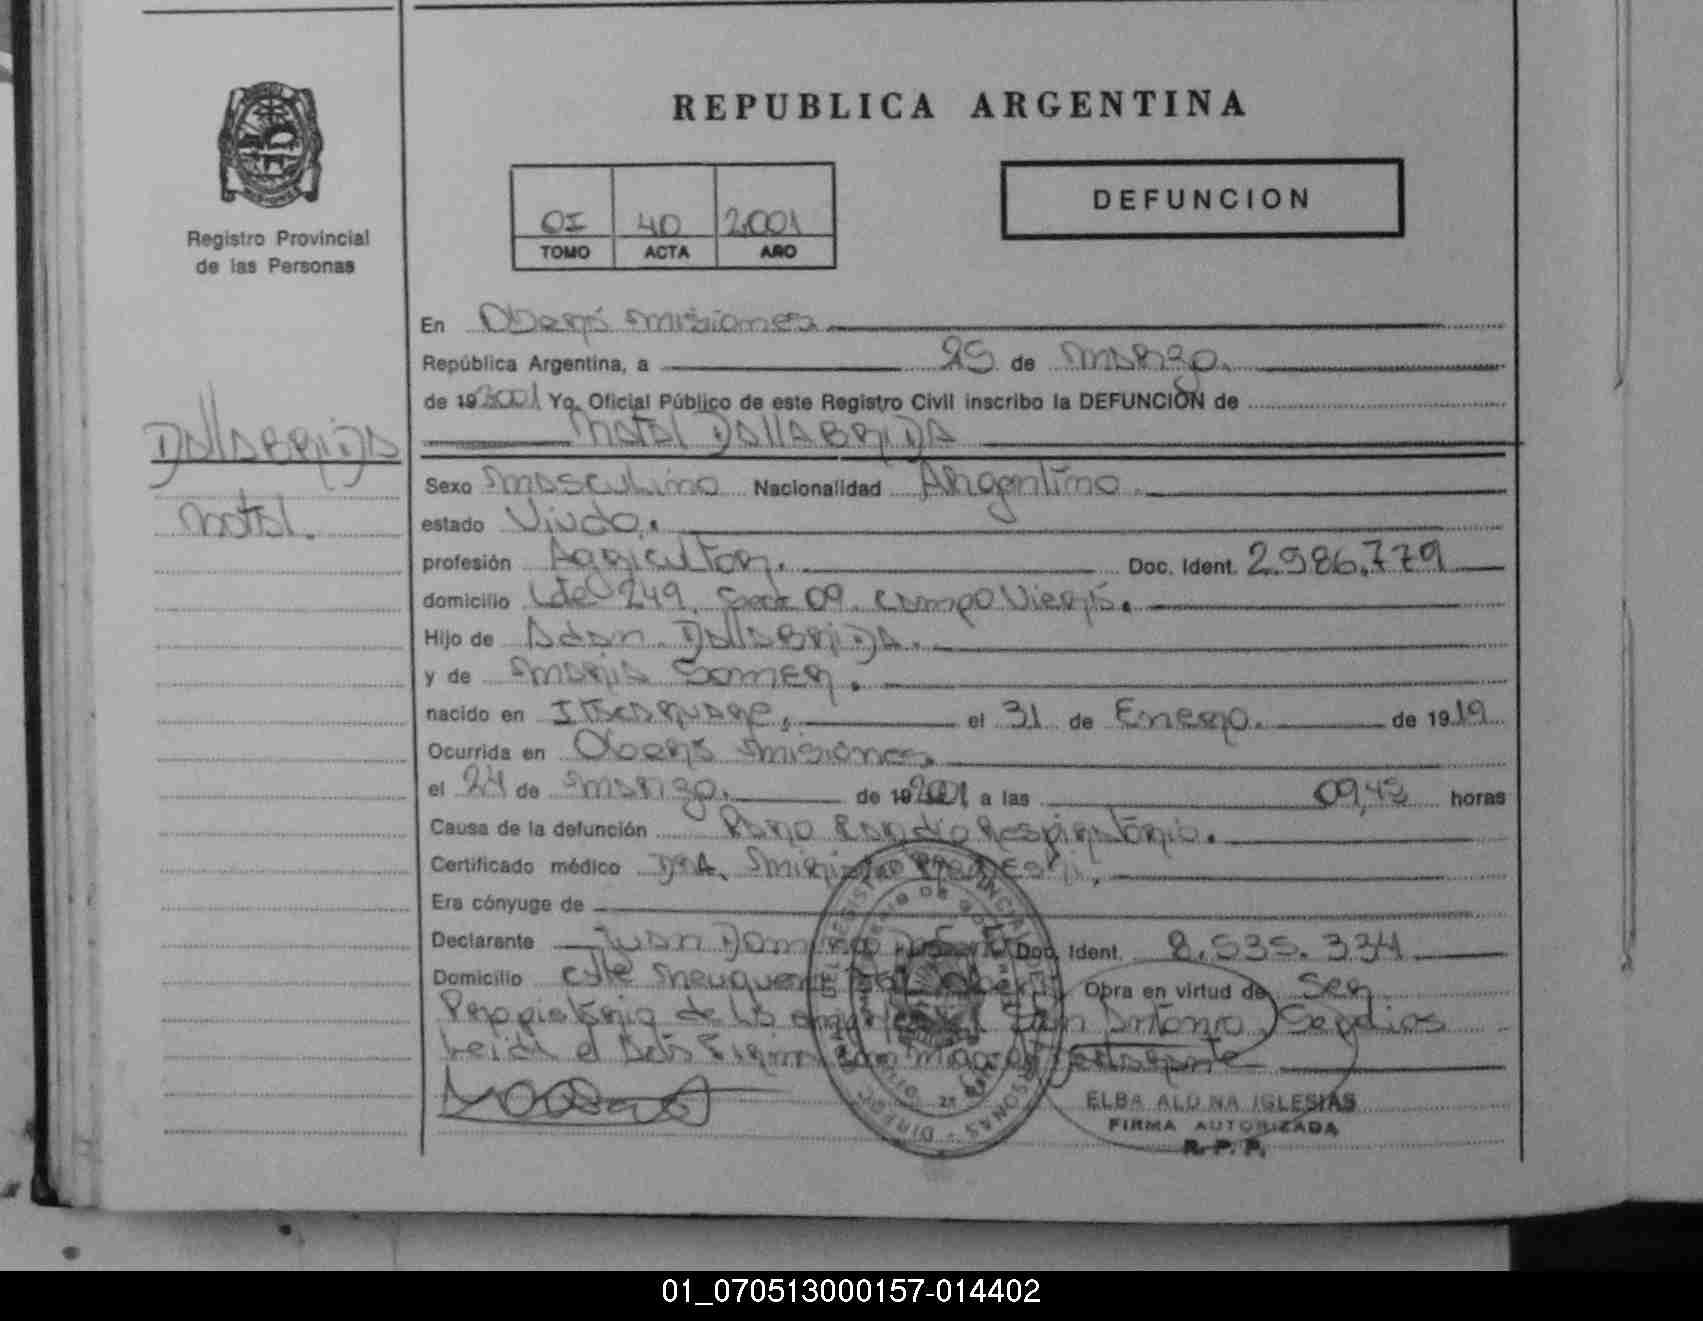 REPUBLICA ARGENTINA
Registro Provincial
de las Personas
OI 40 2.001
TOMO ACTA AÑO
DEFUNCION
DALLABRIDA
Natal.
En Oberá Misiones
República Argentina, a 25 de Marzo.
de 19 2001 Yo, Oficial Público de este Registro Civil inscribo la DEFUNCIÓN de
Natal DALLABRIDA
Sexo Masculino Nacionalidad Argentino.
estado Viudo.
profesión Agricultor. Doc. Ident. 2.986.779
domicilio Lote 249, Secc 09. Campo Viera.
Hijo de Adan DALLABRIDA.
y de Maria Somer.
nacido en el 31 de Enero. de 1919
Ocurrida en Oberá Misiones.
el 24 de Marzo. de 19 2001 a las 09,45 horas
Causa de la defunción Paro Cardio Respiratorio.
Certificado médico DRA.
Era cónyuge de
Declarante Juan Domingo Doc. Ident. 8.535.334
Domicilio Calle Neuquen Obra en virtud de Ser
Propietario de la San Antonio Servicios
Leida el Acta
ELBA ALDINA IGLESIAS
FIRMA AUTORIZADA
R. P. P.
01_070513000157-014402